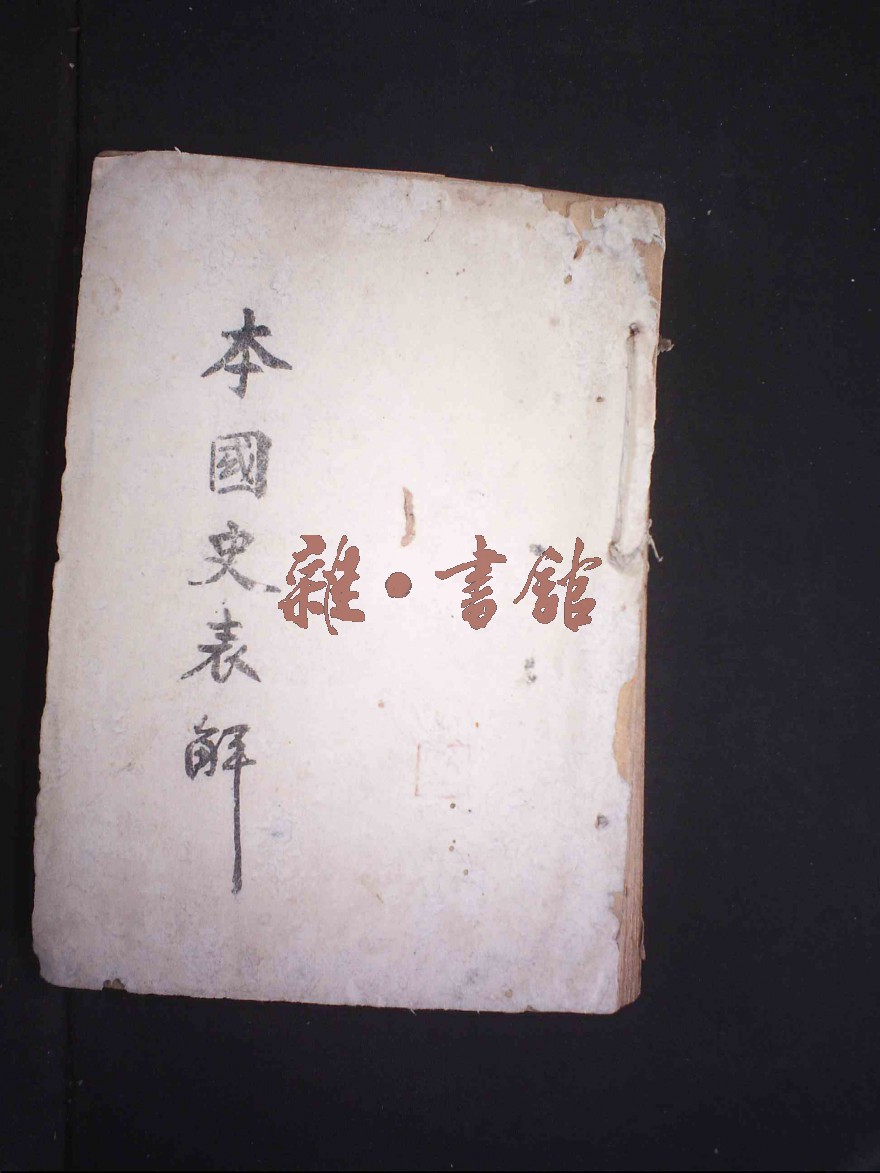 本國史表解
雜·書館